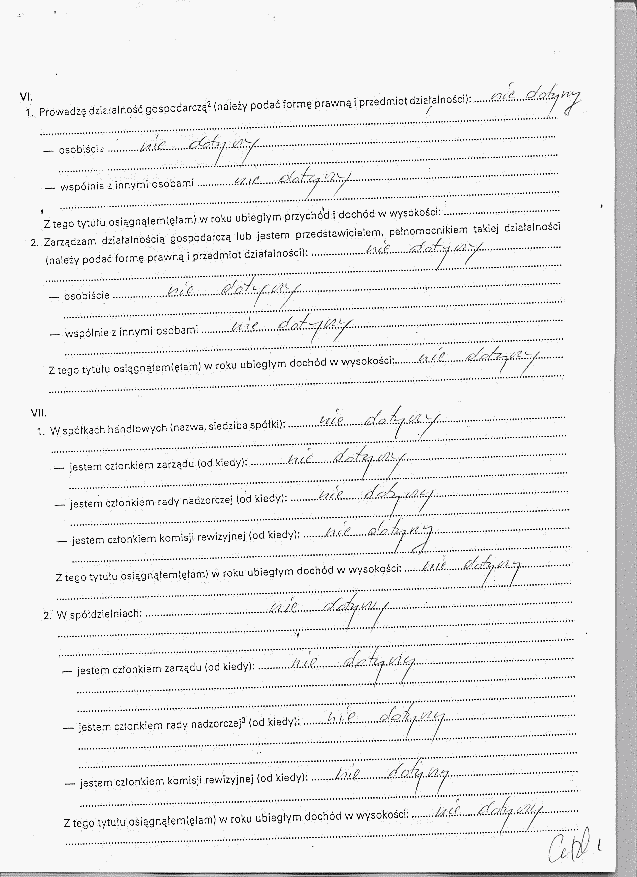 VI.
1. Prowadzę działalność gospodarczą² (należy podać formę prawną i przedmiot działalności): nie dotyczy
— osobiście nie dotyczy
— wspólnie z innymi osobami nie dotyczy
Z tego tytułu osiągnąłem(ęłam) w roku ubiegłym przychód i dochód w wysokości:
2. Zarządzam działalnością gospodarczą lub jestem przedstawicielem, pełnomocnikiem takiej działalności
(należy podać formę prawną i przedmiot działalności): nie dotyczy
— osobiście nie dotyczy
— wspólnie z innymi osobami nie dotyczy
Z tego tytułu osiągnąłem(ęłam) w roku ubiegłym dochód w wysokości: nie dotyczy
VII.
1. W spółkach handlowych (nazwa, siedziba spółki): nie dotyczy
— jestem członkiem zarządu (od kiedy): nie dotyczy
— jestem członkiem rady nadzorczej (od kiedy): nie dotyczy
— jestem członkiem komisji rewizyjnej (od kiedy): nie dotyczy
Z tego tytułu osiągnąłem(ęłam) w roku ubiegłym dochód w wysokości: nie dotyczy
2. W spółdzielniach: nie dotyczy
— jestem członkiem zarządu (od kiedy): nie dotyczy
— jestem członkiem rady nadzorczej³ (od kiedy): nie dotyczy
— jestem członkiem komisji rewizyjnej (od kiedy): nie dotyczy
Z tego tytułu osiągnąłem(ęłam) w roku ubiegłym dochód w wysokości: nie dotyczy